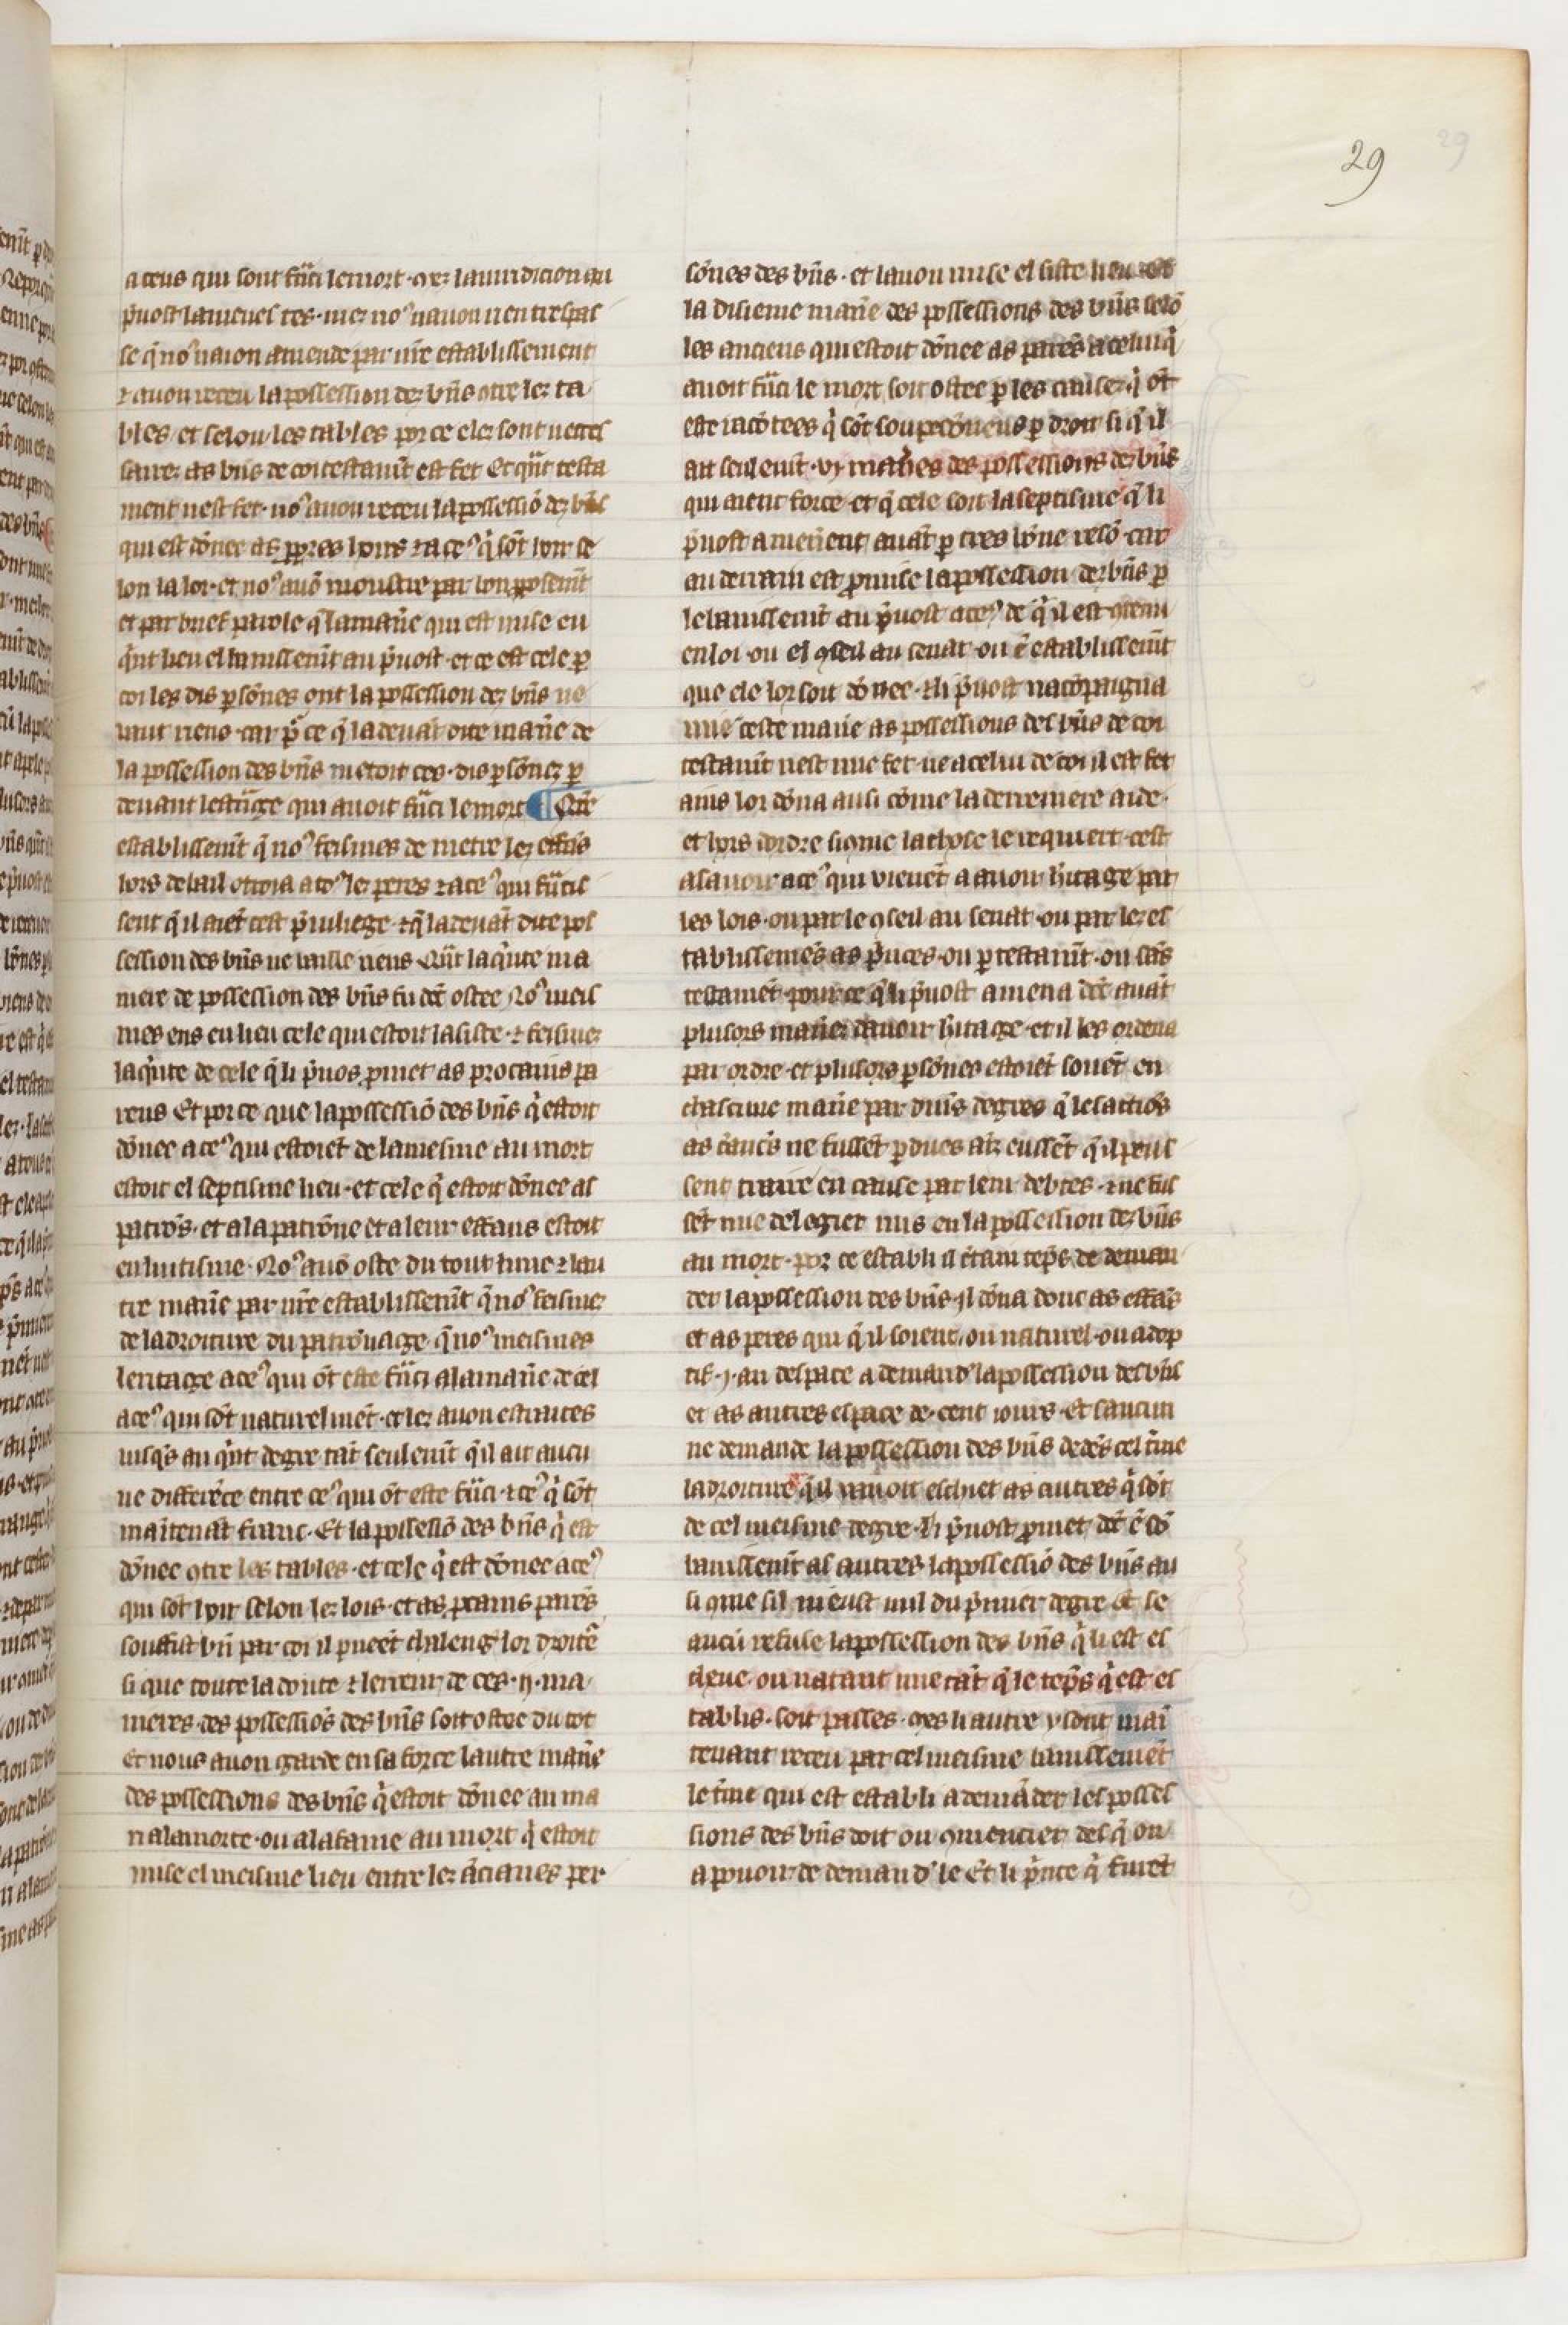 29
29
a ceus qui sont frãci le mort · mez la iuridicion au
p̃uost la menet tes · mez no⁹ nauon rien trespas
se q̃ no⁹ naion amende par nr̃e establissement
⁊ auon receu la possession dez bñs ꝯtre lez ta
bles et selon les tables por ce elez sont neces
saires as bñs de coi testam̃t est fet Et qñt testa
ment nest fet · no⁹ auon receu la possessiõ dez bñs
qui est dõnee as ꝓpres hoirs ⁊ a ce⁹ q̃ sõt hoir se
lon la loi · et no⁹ auõ moustre par lor ꝓposem̃t
et par brief parole q̃ la mañe qui est mise en
q̃nt lieu el banissem̃t au p̃uost · et ce est cele ꝑ
coi les dis ꝑsõnes ont la possession dez bñs ne
vaut riens · car ꝑ ce q̃ la deuãt dite mañe de
la possession des bñs metoit ces · dis ꝑsõnez ꝑ
deuant lestrãge qui auoit frãci le mort ¶ Nr̃e
establissem̃t q̃ no⁹ feismes de metre lez enfãs
hors de bail otroia a to⁹ lez peres ⁊ a ce⁹ qui frãcis
sent q̃ il aiẽt cest p̃uilege · ⁊ q̃ la deuãt dite pos
session des bñs ne vaille riens Qñt la q̃nte ma
niere de possession des bñs fu dõc ostee No⁹ meis
mes ens en lieu cele qui estoit la siste · ⁊ feismez
la q̃nte de cele q̃ li p̃uos ꝓmet as prochains pa
rens Et por ce que la possessiõ des bñs q̃ estoit
dõnee a ce⁹ qui estoiẽt de la mesnie au mort
estoit el septisme lieu · et cele q̃ estoit dõnee as
patrõs · et a la patrõne et a leur enfans estoit
en luitisme · No⁹ auõ oste du tout lune ⁊ lau
tre mañe par nr̃e establissem̃t q̃ no⁹ feismez
de la droiture du patrõnage · q̃ no⁹ meismes
leritage a ce⁹ qui õt este frãci a la mañe de cel
a ce⁹ qui sõt naturelmẽt · et lez auon estraites
iusq̃s au q̃nt degre tãt seulem̃t q̃l ait aucu
ne differẽce entre ce⁹ qui õt este frãci · ⁊ ce⁹ q̃ sõt
maĩtenãt franc · Et la possessiõ des bñs q̃ est
dõnee ꝯtre les tables · et cele q̃ est dõnee a ce⁹
qui sõt hoir selon lez lois · et as ꝓcains parẽs
souffist bñ par coi il pueẽt chaleng̃ lor droit̃e
si que toute la doute ⁊ lerreur de ces · ij · ma
nieres · des possessiõs des bñs soit ostee du tot
Et nous auon garde en sa force lautre mañe
des possessions des bñs q̃ estoit dõnee au ma
ri a la morte · ou a la fame au mort q̃ estoit
mise el meisme lieu entre lez ãcianes per
sõnes des bñs · et lauon mise el siste lieu
la disieme mañe des possessions des bñs selõ
les anciens qui estoit dõnee as parẽs a celui q̃
auoit frãci le mort soit ostee ꝑ les causez q̃ õt
este racõtees q̃ sõt souꝓcõneus ꝑ droit si q̃ il
ait seulem̃t · vj mañes des possessions dez bñs
qui aient force · et q̃ cele soit la septisme q̃ li
p̃uost amenent auãt ꝑ tres bõne resõ · car
au derrain est ꝓmise la possession dez bñs ꝑ
le banissem̃t au p̃uost a to⁹ de q̃ il est ꝯtenu
en loi · ou el ꝯseil au senat · ou ẽ establissem̃t
que ele lor soit dõnee · ⁊ li p̃uost nacõpaigna
mie ceste mañe as possessions des bñs de coi
testam̃t nest mie fet · ne a celui de coi il est fet
ains lor dõna ausi cõme la derreniere aide ·
et hors dordre si ꝯme la chose le requiert · cest
a sauoir a ce⁹ qui vienẽt a auoir h̃itage par
les lois · ou par le ꝯseil au senat · ou par lez es
tablissemẽs as p̃nces · ou ꝑ testam̃t · ou sãs
testamẽt · pour ce q̃ li p̃uost amena dõc auãt
plusors mañez dauoir h̃itage · et il les ordena
par ordre · et plusors ꝑsõnes estoiẽt souẽt en
chascune mañe par diuũs degres q̃ les actiõs
as cãuc̃s ne fussẽt ꝑdues aĩz eussẽt q̃ il peus
sent traire en cause par leur debtes · ⁊ ne fus
sẽt mie de legier mis en la possession dez bñs
au mort · por ce establi il c̃tain tẽps de deman
der la possession des bñs · Il dõna donc as enfãs
et as peres qui q̃ il soient · ou naturel · ou adop
tif · j · an despace a demand̃ la possession des bñs
et as autres espace de · cent iours · Et saucun
ne demande la possession des bñs dedẽs cel t̃me
la droiture q̃ il i auoit eschiet as autres q̃ sõt
de cel meisme degre · li p̃uost ꝓmet dõc ẽ sõ
banissem̃t as autres la possessiõ des bñs au
si ꝯme sil nieust nul du p̃mier degre Et se
aucũ refuse la possession des bñs q̃ li est es
cheue · ou natant mie tãt q̃ le tẽps q̃ est es
tablis · soit passes · mes li autre y sont mai
tenant receu par cel meisme banissemẽt
le t̃me qui est establi a demãder les posses
sions des bñs doit on ꝯmencier des q̃ on
a pouoir de demand̃le Et li p̃nce q̃ furẽt